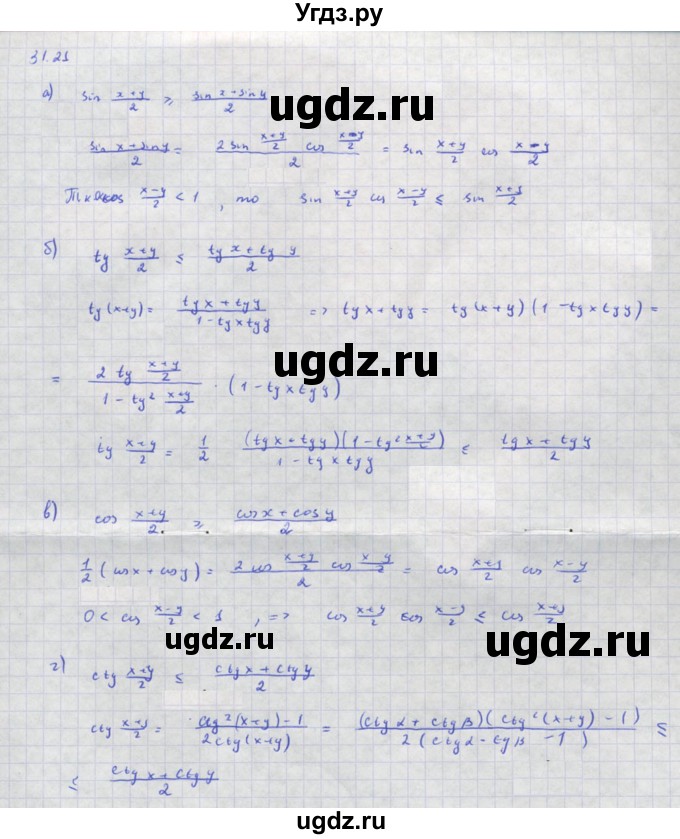 Угдз.ру
31.21
ugdz.ru
а) sin (x+y)/2 ≥ (sin x + sin y)/2
(sin x + sin y)/2 = (2 sin (x+y)/2 cos (x-y)/2)/2 = sin (x+y)/2 cos (x-y)/2
Т.к. cos (x-y)/2 < 1, то sin (x+y)/2 cos (x-y)/2 ≤ sin (x+y)/2
ugdz.ru
б) tg (x+y)/2 ≤ (tg x + tg y)/2
tg (x+y) = (tg x + tg y)/(1 - tg x tg y) => tg x + tg y = tg (x+y) (1 - tg x tg y) =
ugdz.ru
= (2 tg (x+y)/2)/(1 - tg² (x+y)/2) · (1 - tg x tg y)
tg (x+y)/2 = 1/2 (tg x + tg y)(1 - tg² (x+y)/2)/(1 - tg x tg y) ≤ (tg x + tg y)/2
ugdz.ru
в) cos (x+y)/2 ≥ (cos x + cos y)/2
1/2 (cos x + cos y) = (2 cos (x+y)/2 cos (x-y)/2)/2 = cos (x+y)/2 cos (x-y)/2
0 < cos (x-y)/2 < 1, => cos (x+y)/2 cos (x-y)/2 ≤ cos (x+y)/2
ugdz.ru
ugdz.ru
г) ctg (x+y)/2 ≤ (ctg x + ctg y)/2
ctg (x+y)/2 = (ctg² (x+y) - 1)/(2 ctg (x+y)) = (ctg α + ctg β)(ctg² (x+y) - 1)/2 (ctg α · ctg β - 1) ≤
≤ (ctg x + ctg y)/2
ugdz.ru
ugdz.ru